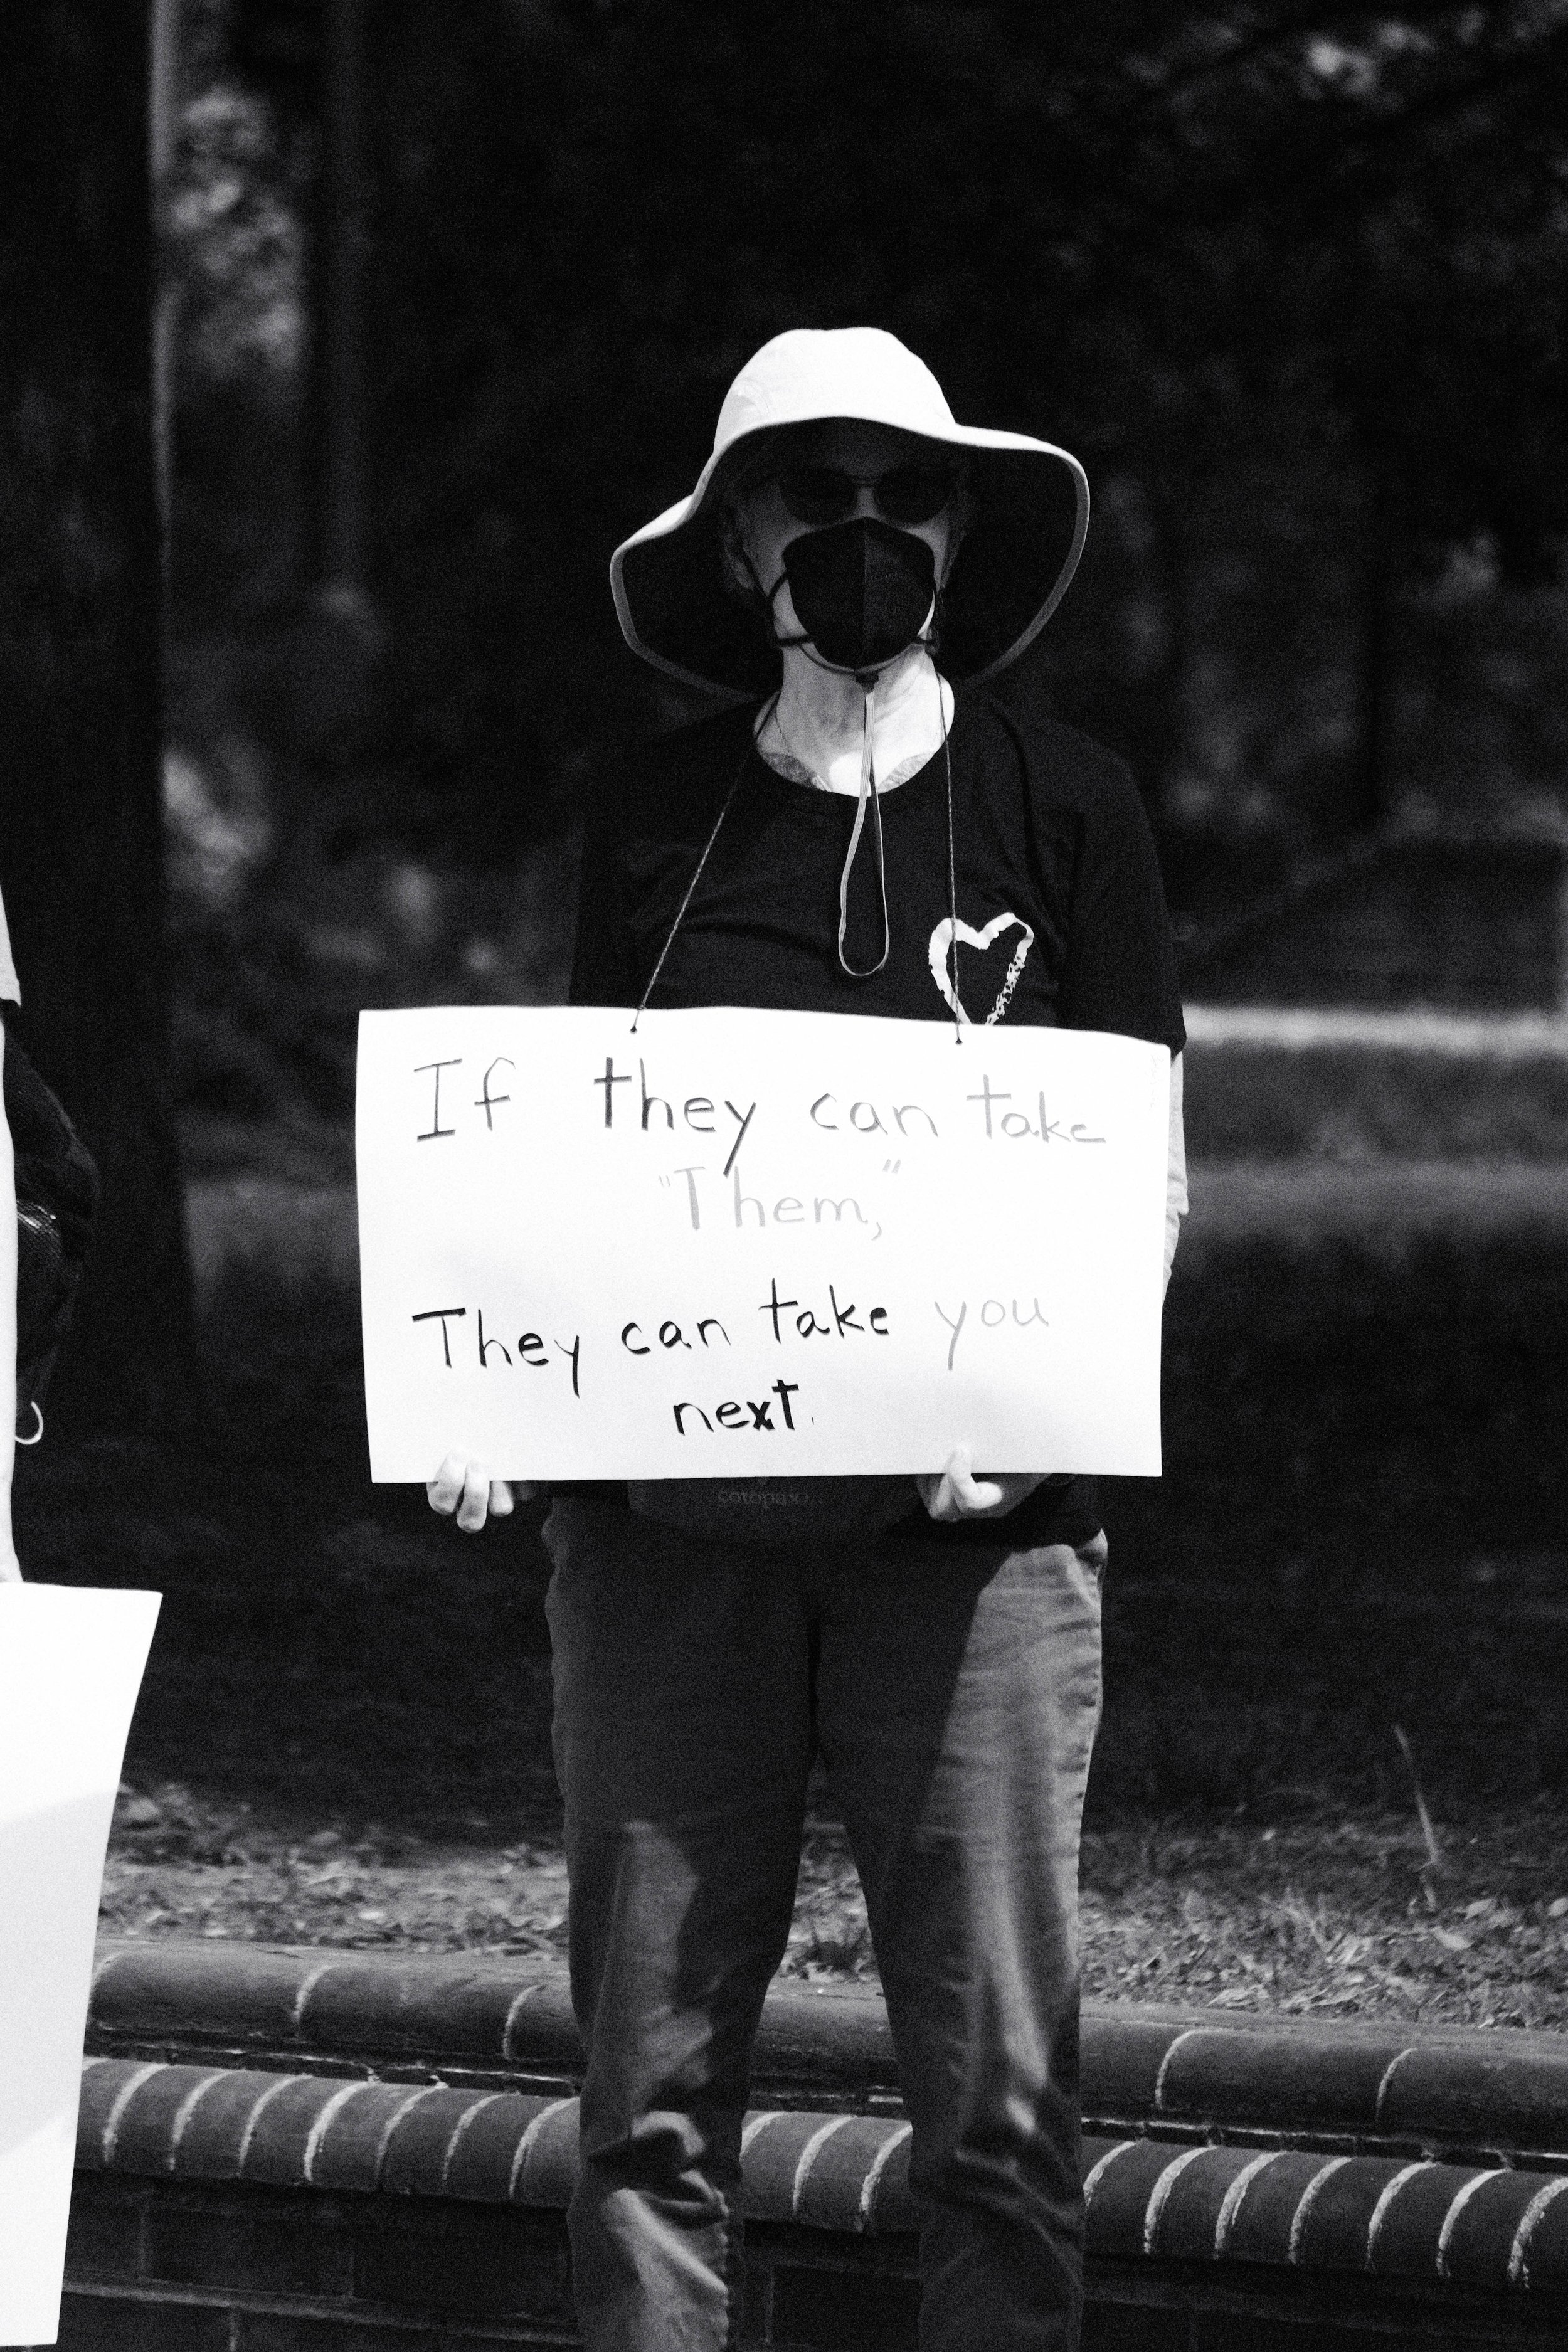 If they can take
"Them,"
They can take you
next.
cotopaxi